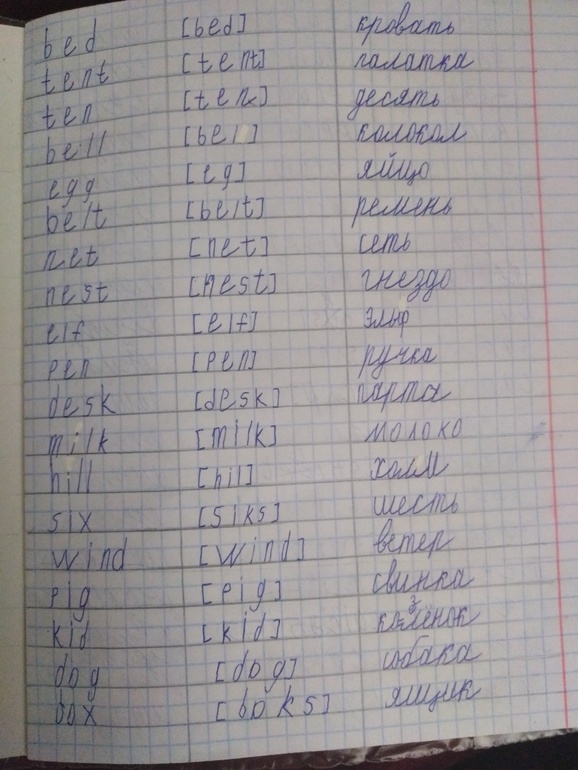 bed [bed] кровать
tent [tent] палатка
ten [ten] десять
bell [bel] колокол
egg [eg] яйцо
belt [belt] ремень
net [net] сеть
nest [nest] гнездо
elf [elf] эльф
pen [pen] ручка
desk [desk] парта
milk [milk] молоко
hill [hil] холм
six [siks] шесть
wind [wind] ветер
pig [pig] свинка
kid [kid] козленок
dog [dog] собака
box [boks] ящик